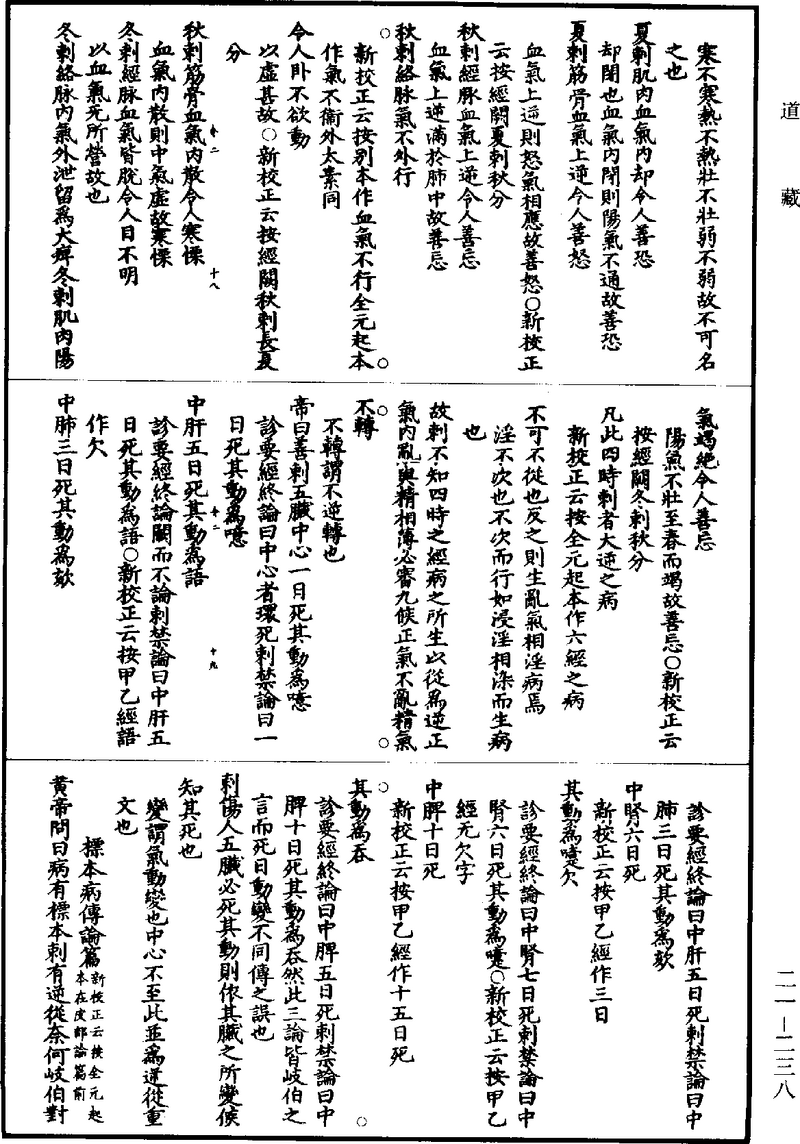 道藏
寒不寒熱不熱壯不壯弱不弱故不可名
之也
夏刺肌肉血氣內却令人善恐
却閉也血氣內閉則陽氣不通故善恐
夏刺筋骨血氣上逆令人善怒
血氣上逆則怒氣相應故善怒○新校正
云按經闕夏刺秋分
秋刺經脉血氣上逆令人善忘
血氣上逆滿於肺中故善忘
秋刺絡脉氣不外行
新校正云按别本作血氣不行全元起本
作氣不衞外太素同
令人卧不欲動
以虛甚故○新校正云按經闕秋刺長夏
分
秋刺筋骨血氣內散令人寒慄
卷二
十八
血氣內散則中氣虛故寒慄
冬刺經脉血氣皆脫令人目不明
以血氣无所營故也
冬刺絡脉內氣外泄留爲大痺冬刺肌肉陽
氣竭絕令人善忘
陽氣不壯至春而竭故善忘○新校正云
按經闕冬刺秋分
凡此四時刺者大逆之病
新校正云按全元起本作六經之病
不可不從也反之則生亂氣相淫病焉
淫不次也不次而行如浸淫相染而生病
也
故刺不知四時之經病之所生以從爲逆正
氣內亂與精相薄必審九候正氣不亂精氣
不轉
不轉謂不逆轉也
帝曰善刺五臟中心一日死其動爲噫
診要經終論曰中心者環死刺禁論曰一
日死其動爲噫
中肝五日死其動爲語
卷二
十九
診要經終論闕而不論刺禁論曰中肝五
日死其動爲語○新校正云按甲乙經語
作欠
中肺三日死其動爲欬
診要經終論曰中肝五日死刺禁論曰中
肺三日死其動爲欬
中腎六日死
新校正云按甲乙經作三日
其動爲嚏欠
診要經終論曰中腎七日死刺禁論曰中
腎六日死其動爲嚏○新校正云按甲乙
經无欠字
中脾十日死
新校正云按甲乙經作十五日死
其動爲吞
診要經終論曰中脾五日死刺禁論曰中
脾十日死其動爲吞然此三論皆岐伯之
言而死日動變不同傳之誤也
刺傷人五臟必死其動則依其臟之所變候
知其死也
變謂氣動變也中心不至此並爲逆從重
文也
標本病傳論篇新校正云按全元起
本在皮部論篇前
黃帝問曰病有標本刺有逆從奈何岐伯對
二一—二三八